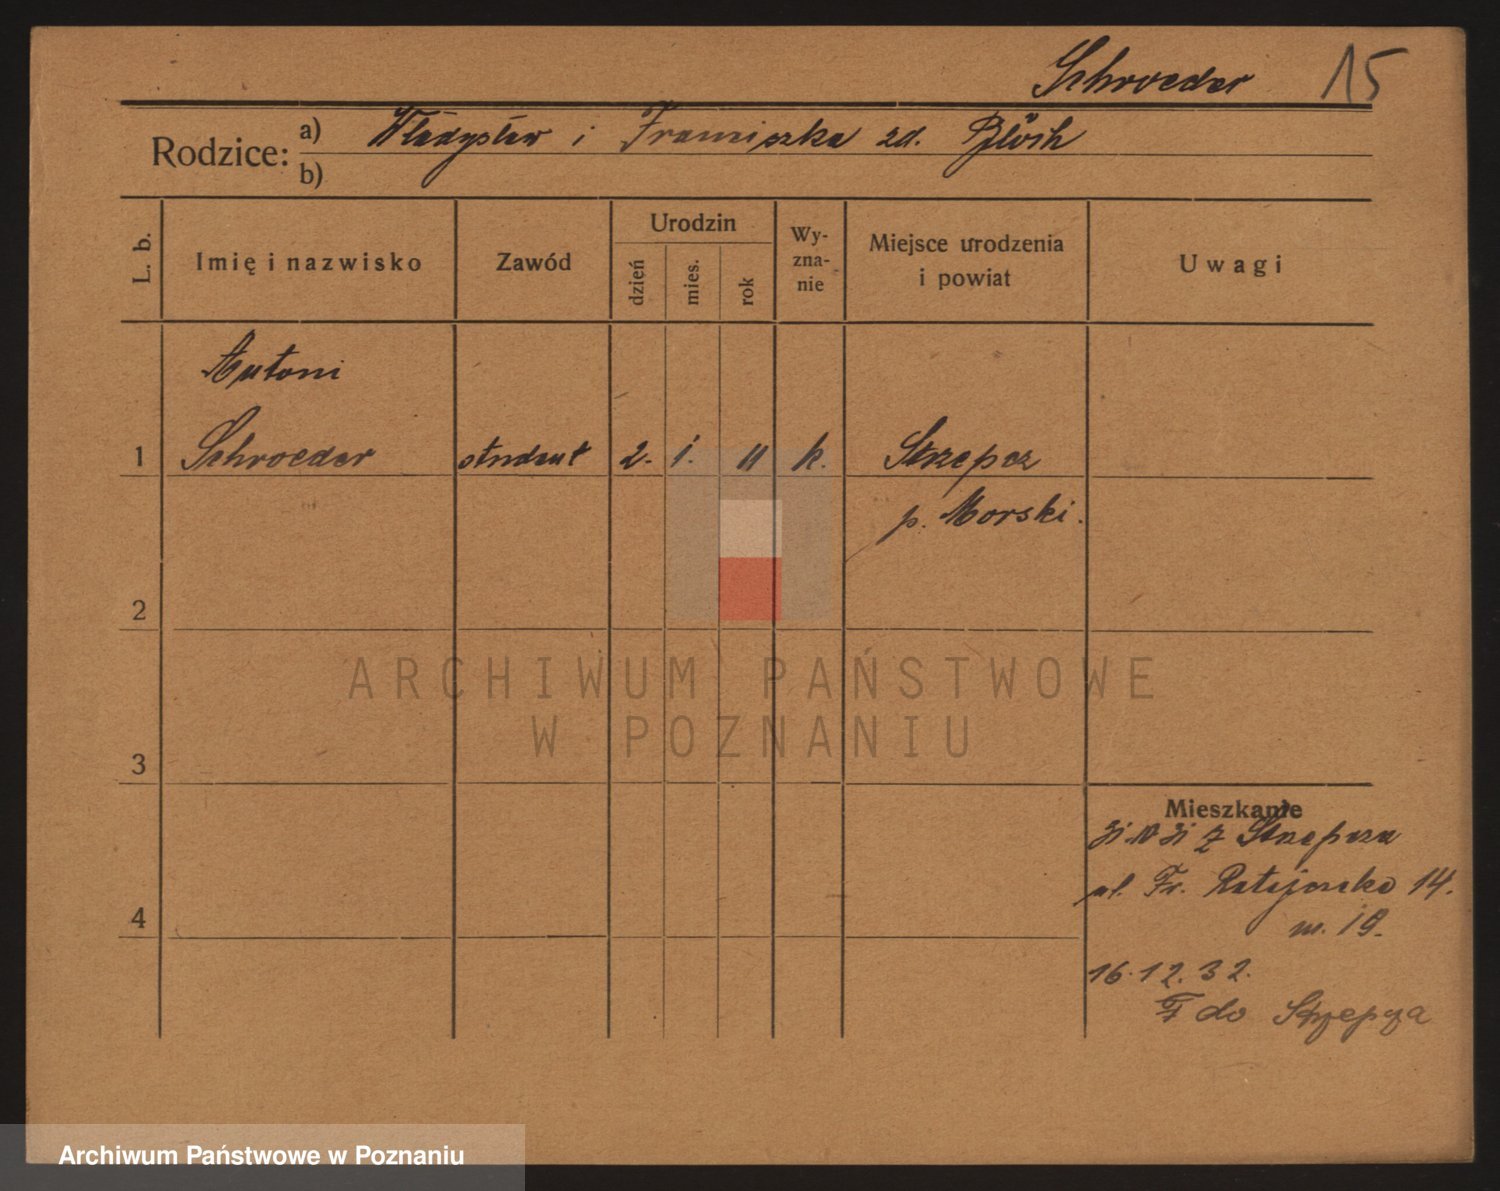 Schroeder 15
Rodzice: a) Władysław i Franciszka zd.
b)
L. b.
Imię i nazwisko
Zawód
Urodzin
dzień
mies.
rok
Wy-
zna-
nie
Miejsce urodzenia
i powiat
Uwagi
Antoni
1 Schroeder student 2. 1. 11 k. Strzepcz
p. Morski.
2
3
4
Mieszkanie
z Strzepcza
ul. Fr. Ratajczaka 14.
m. 19.
16.12.32.
do Strzepcza
ARCHIWUM PAŃSTWOWE
W POZNANIU
Archiwum Państwowe w Poznaniu